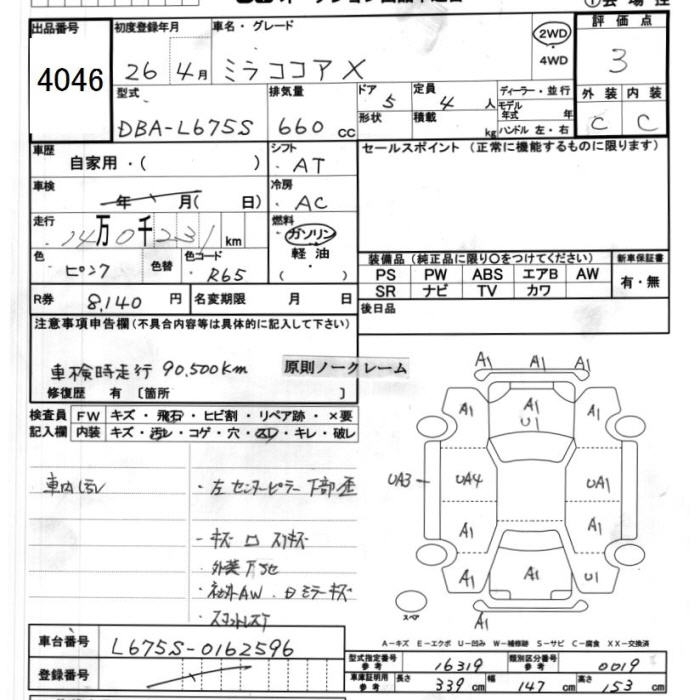 出品番号 初度登録年月 車名・グレード 2WD ・ 4WD 評価点
4046 26 4月 ミラココア X 3
型式 排気量 ドア 5 定員 4 人 ディーラー・並行 外装 内装
DBA-L675S 660 cc 形状 積載 kg モデル年式 年 C C
ハンドル 左・右
車歴 自家用・( ) シフト ・AT セールスポイント (正常に機能するものに限ります)
車検 年 月( 日) 冷房 ・AC
走行 14万0千231 km 燃料 ・ガソリン
軽油
・( )
色 ピンク 色替 色コード R65
装備品 (純正品に限り○をつけてください) 新車保証書
PS PW ABS エアB AW 有・無
SR ナビ TV カワ
R券 8,140 円 名変期限 月 日 後日品
注意事項申告欄 (不具合内容等は具体的に記入して下さい)
車検時走行 90,500km 原則ノークレーム
修復歴 有 〔箇所 〕
検査員 FW キズ・飛石・ヒビ割・リペア跡・×要
記入欄 内装 キズ・汚レ・コゲ・穴・スレ・キレ・破レ
車内汚レ ・左センターピラー下部歪
・キズ
外装
A1 A1 A1
A1 A1 U1 A1
UA3 UA4 UA1
A1 A1
A1 A1 U1
A1
スペア
A-キズ E-エクボ U-凹み W-補修跡 S-サビ C-腐食 XX-交換済
車台番号 L675S-0162596
型式指定番号 参考 16319 類別区分番号 参考 0019
登録番号
車庫証明用 参考 長さ 339 cm 幅 147 cm 高さ 153 cm